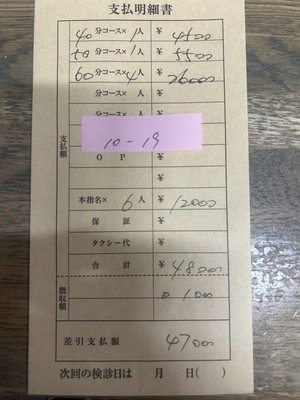 支払明細書
40分コース× 1人 ¥ 4500
50分コース× 1人 ¥ 5500
60分コース× 4人 ¥ 26000
分コース× 人 ¥
分コース 人 ¥
10-19
支払額
OP ¥
¥
本指名× 6人 ¥ 12000
保証 ¥
タクシー代 ¥
合計 ¥ 48000
徴収額
1000
差引支払額 47000
次回の検診日は 月 日( )